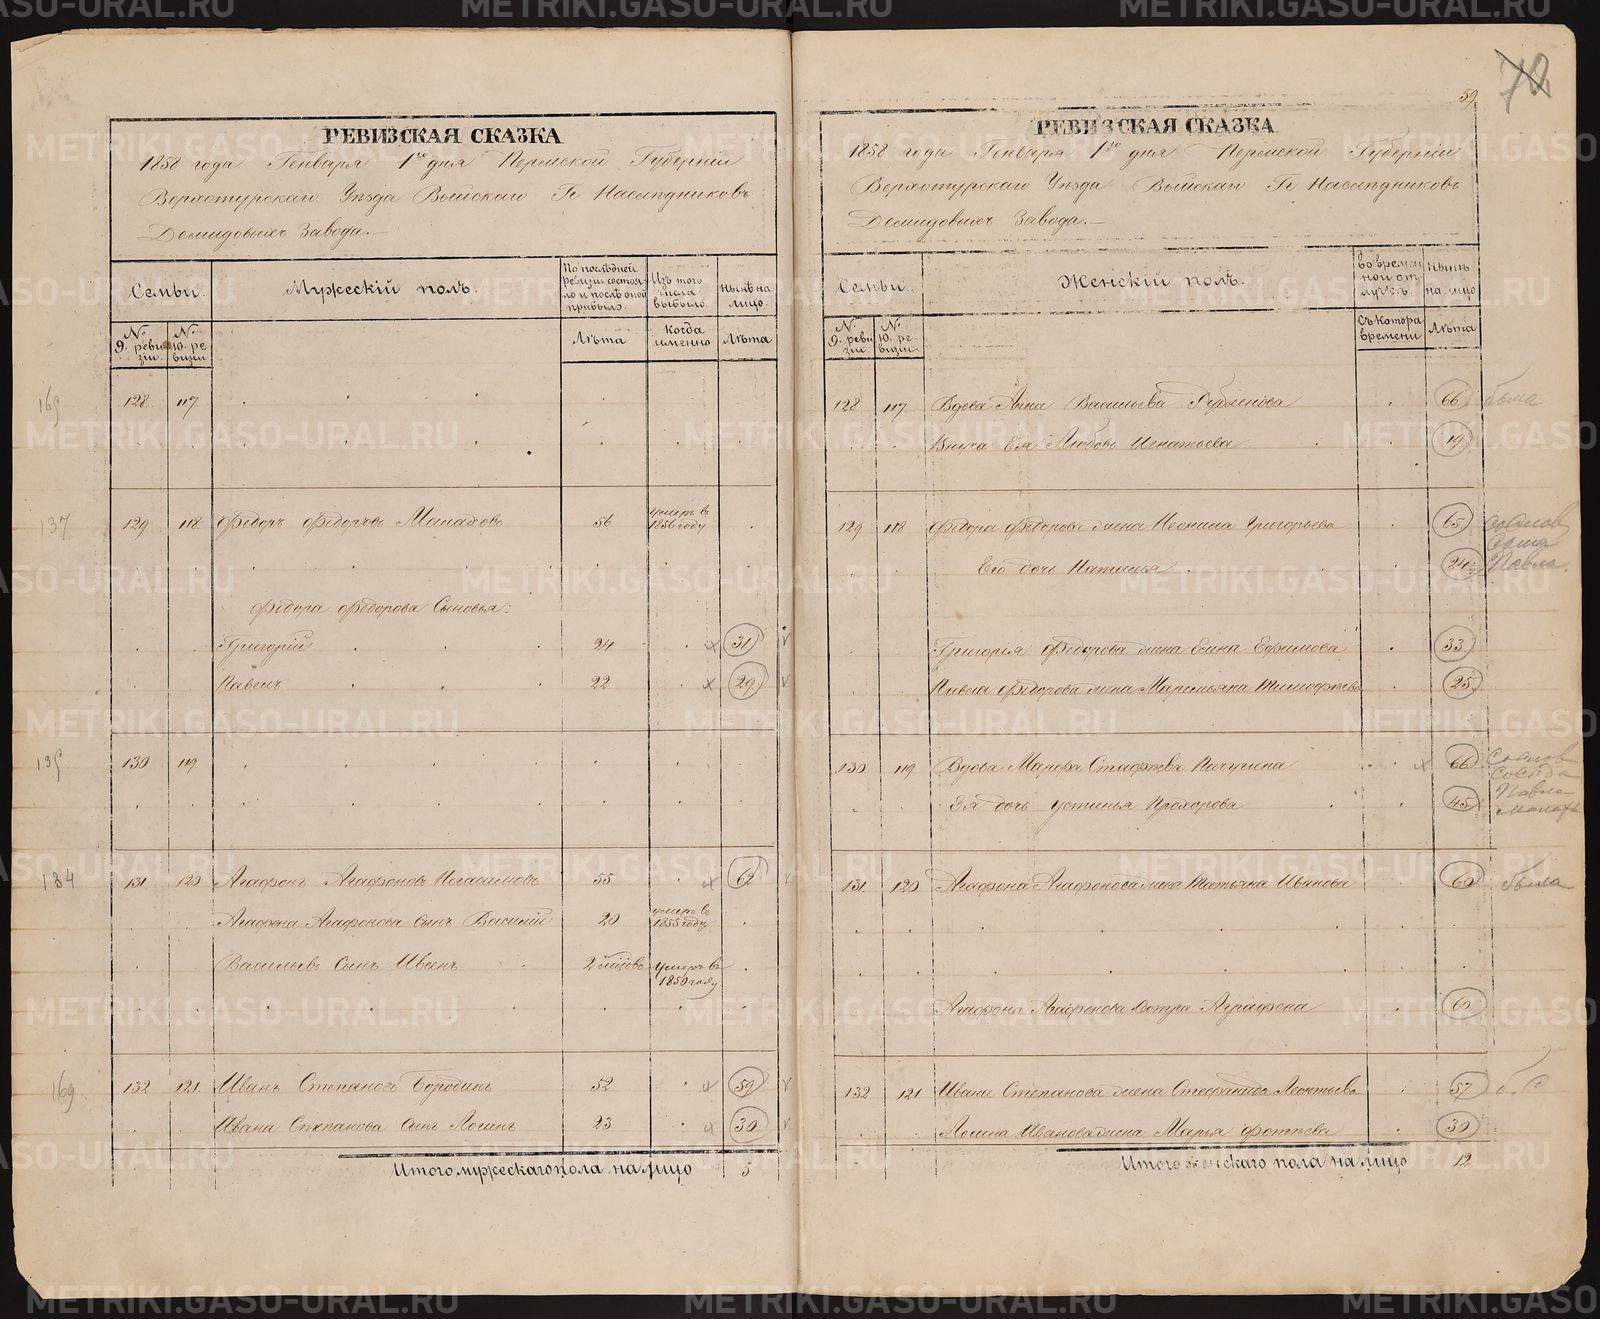 59.
72
РЕВИЗСКАЯ СКАЗКА
1858 года Генваря 1го дня Пермской Губерніи
Верхотурскаго Уѣзда Выйскаго Гг Наслѣдниковъ
Демидовыхъ Завода.
Семьи. Мужескій полъ. По послѣдней ревизіи состояло и послѣ оной прибыло. Изъ того числа выбыло. Нынѣ на лицо.
№ 9. ревизіи № 10. ревизіи Лѣта когда именно Лѣта
165 128 117
137 129 118 Ѳедоръ Ѳедоровъ Малаховъ 56 умеръ въ 1856 году
Ѳедора Ѳедорова Сыновья:
Григорій 24 31
Павелъ 22 29
130 119
134 131 120 Агафонъ Агафоновъ 55 62
Агафона Агафонова сынъ Василій 20 умеръ въ 1855 году
Васильевъ Сынъ Иванъ умеръ въ 1850 году
169 132 121 Иванъ Степановъ Бородинъ 52 59
Ивана Степанова сынъ Логинъ 23 30
Итого мужескаго пола на лицо 5
РЕВИЗСКАЯ СКАЗКА
1858 года Генваря 1го дня Пермской Губерніи
Верхотурскаго Уѣзда Выйскаго Гг Наслѣдниковъ
Демидовыхъ Завода.
Семьи. Женскій полъ. во временной отлучкѣ. Нынѣ на лицо
№ 9. ревизіи № 10. ревизіи Съ котора времени Лѣта
128 117 Вдова Анна Васильева 66
Внука Ея Любовь Игнатьева 19
129 118 Ѳедора Ѳедорова жена Неонила Григорьева 65
Его дочь Наталья 24 Павла
Григорья Ѳедорова жена Ефимова 33
Павла Ѳедорова жена Маремьяна Тимофѣева 25
130 119 Вдова Марфа Стафѣева Пичугина 66
Ея дочь Устинья Прохорова 45
Павла
131 120 Агафона Агафонова жена Татьяна Иванова 60
Агафона Агафонова Сестра Аграфена 60
132 121 Ивана Степанова жена Стефанида Леонтьева 57
Логина Иванова жена Марья Фотѣева 30
Итого женскаго пола на лицо 12
METRIKI.GASO-URAL.RU